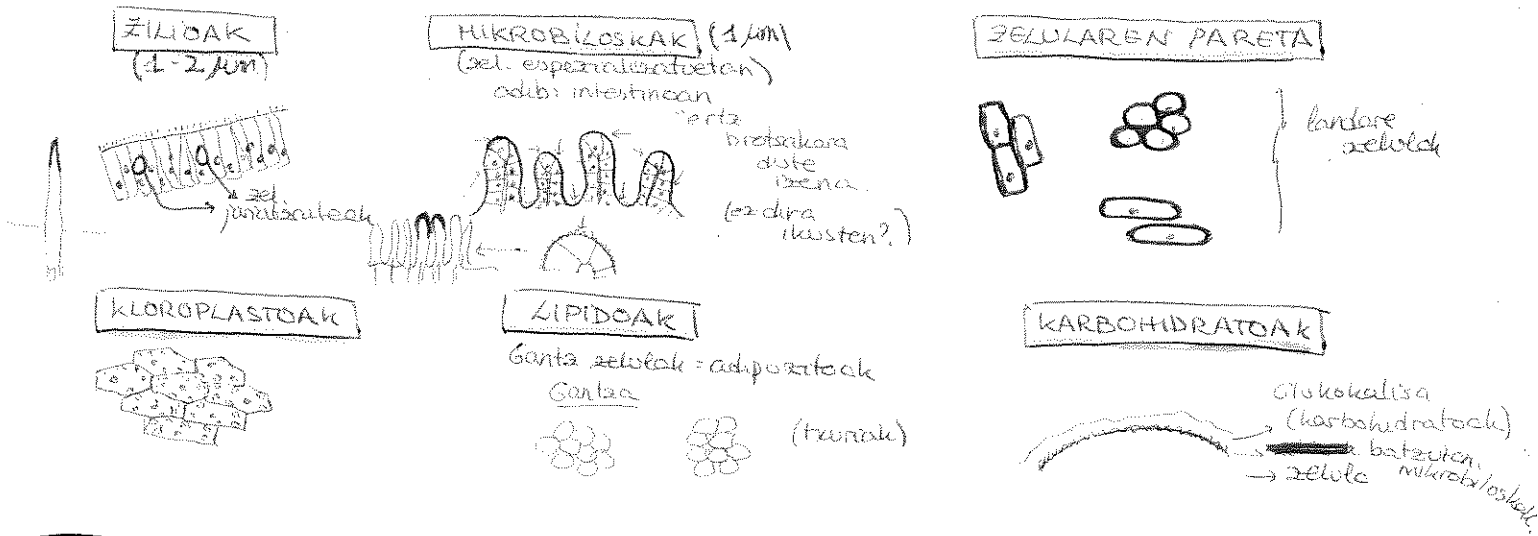 ZILIOAK
(1-2 µm)
zel.
MIKROBILOSKAK (1 µm)
(zel. espezializatuetan)
adib: intestinoan
ertz
dute
izena.
(ez dira
ikusten?)
ZELULAREN PARETA
landare
zelulak
KLOROPLASTOAK
LIPIDOAK
Gantz zelulak = adipozitoak
Gantza
(txuriak)
KARBOHIDRATOAK
Glukokalisa
(karbohidratoak)
batzuten.
mikrobiloskak.
→ zelula